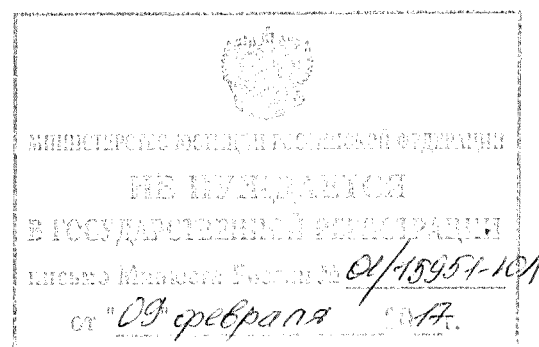 МИНИСТЕРСТВО ЮСТИЦИИ РОССИЙСКОЙ ФЕДЕРАЦИИ
НЕ НУЖДАЕТСЯ
В ГОСУДАРСТВЕННОЙ РЕГИСТРАЦИИ
письмо Минюста России № 01/15951-ЮЛ
от "09" февраля 2017г.